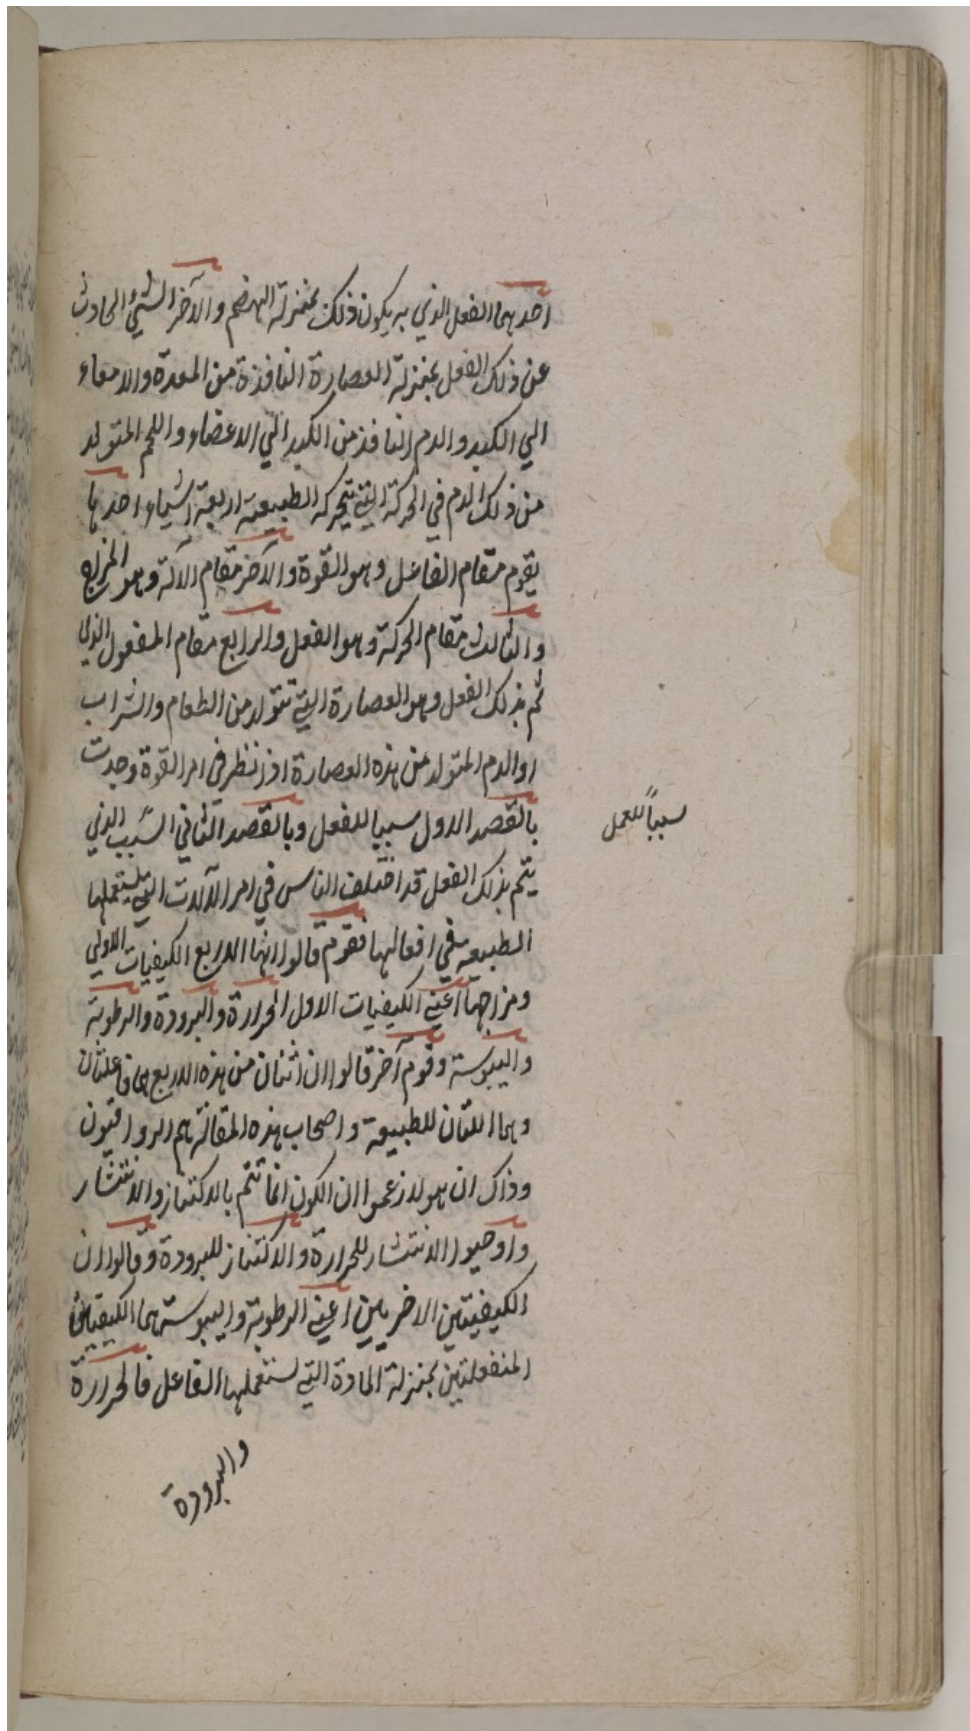 احدهما الفعل الذي به يكون ذلك بمنزلة الهضم والآخر الشيء الحادث
عن ذلك الفعل بمنزلة العصارة النافذة من المعدة والامعاء
الي الكبد والدم النافذ من الكبد الي الاعضاء واللحم المتولد
من ذلك الدم في الحركة التي تتحركه الطبيعة اربعة اشياء احدها
يقوم مقام الفاعل وهو القوة والآخر مقام الآلة وهو المزاج
والثالث مقام الحركة وهو الفعل والرابع مقام المفعول الذي
تم بذلك الفعل وهو العصارة التي تتولد من الطعام والشراب
او الدم المتولد من هذه العصارة اذ ننظر في امر القوة وجدت
بالقصد الاول سببا للفعل وبالقصد الثاني السبب الذي
سبباً للعمل
يتم بذلك الفعل قد اختلف الناس في امر الآلات التي يستعملها
الطبيعة في افعالها فقوم قالوا انها الاربع الكيفيات الاولي
ومزاجها اعني الكيفيات الاول الحرارة والبرودة والرطوبة
واليبوسة وقوم آخر قالوا ان اثنان من هذه الاربع هما فاعلتان
وهما اللتان للطبيعة واصحاب هذه المقالة هم الرواقيون
وذاك ان هولاء زعموا ان الكون انما تتم بالاكتناز والانتشار
واوجبوا الانتشار للحرارة والاكتناز للبرودة وقالوا ان
الكيفيتين الاخريين اعني الرطوبة واليبوسة هما الكيفيتين
المنفعلتين بمنزلة المادة التي تستعملها الفاعل فالحرارة
والبرودة